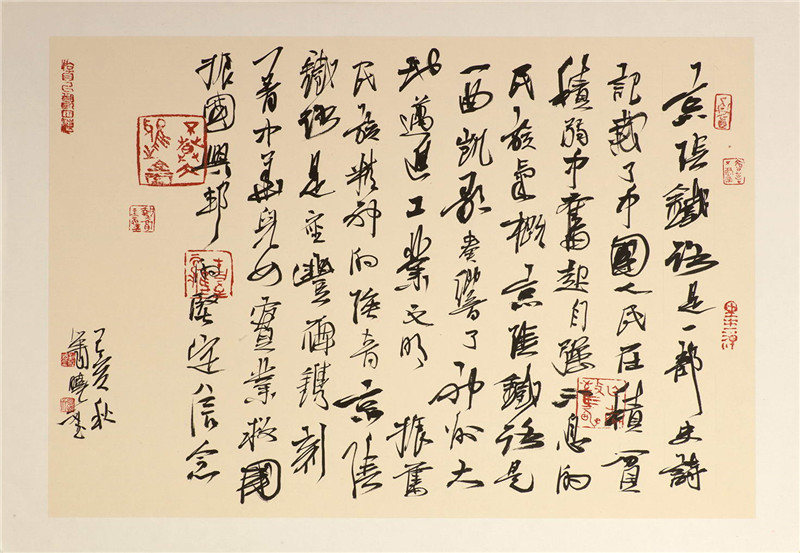 京張鐵路是一部史詩
記載了中國人民在積貧
積弱中奮起自強不息的
民族氣概京張鐵路是
一曲凱歌奏響了神州大
地邁進工業文明振奮
民族精神的強音京張
鐵路是座豐碑鐫刻
了着中華兒女實業救國
振國興邦的堅定信念
己亥秋
蕭